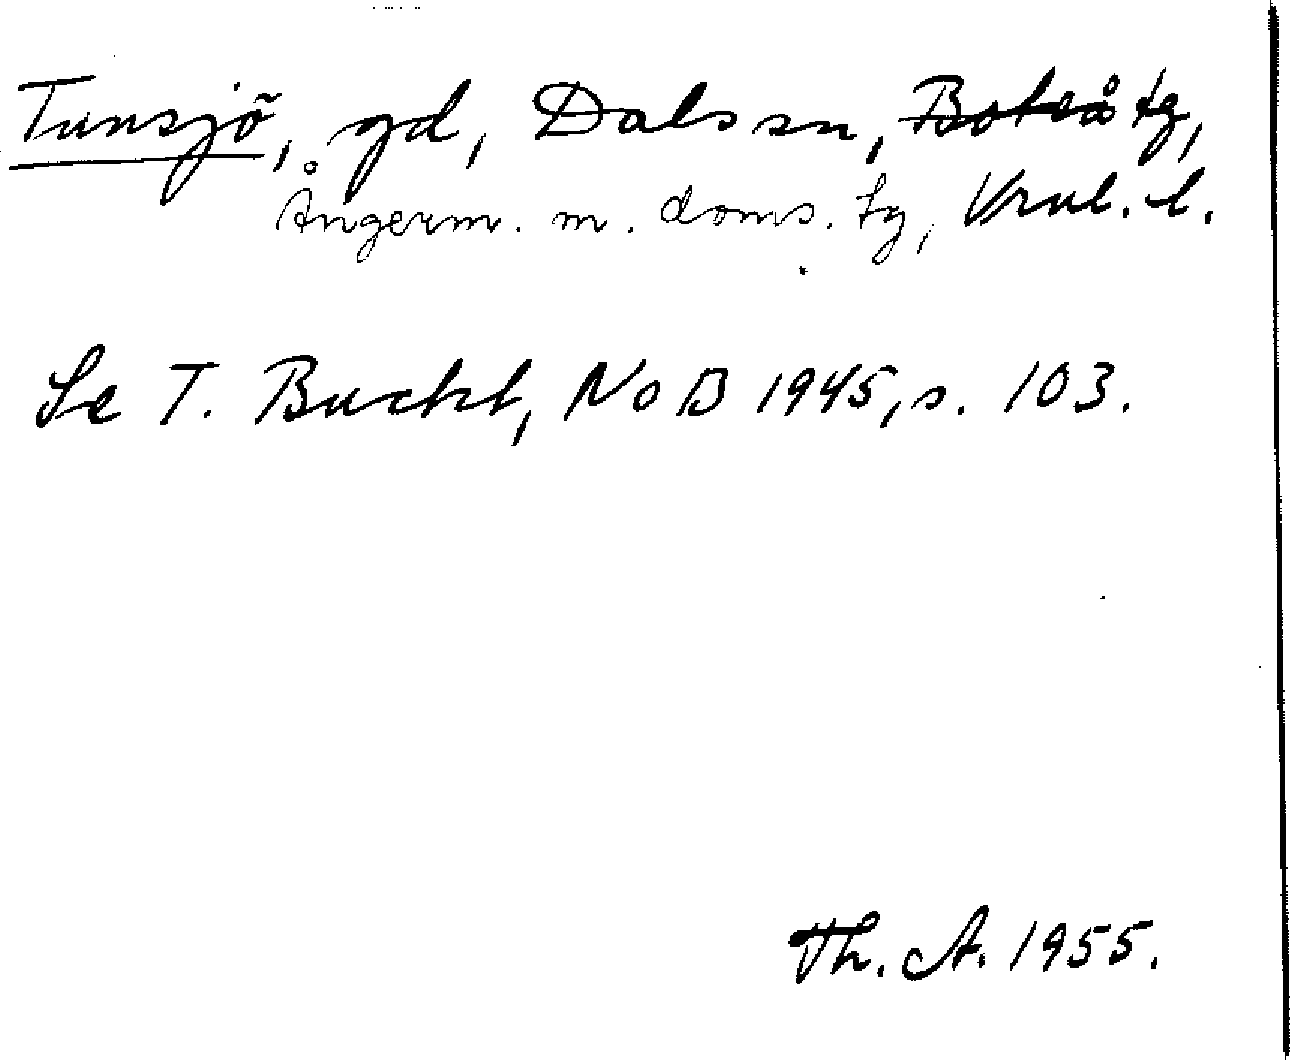 Tunsjö, gd, Dals sn, Boteå tg,
Ångerm. m. doms. tg, Vrnl. l.
Se T. Bucht, NoB 1945, s. 103.
Th. A. 1955.